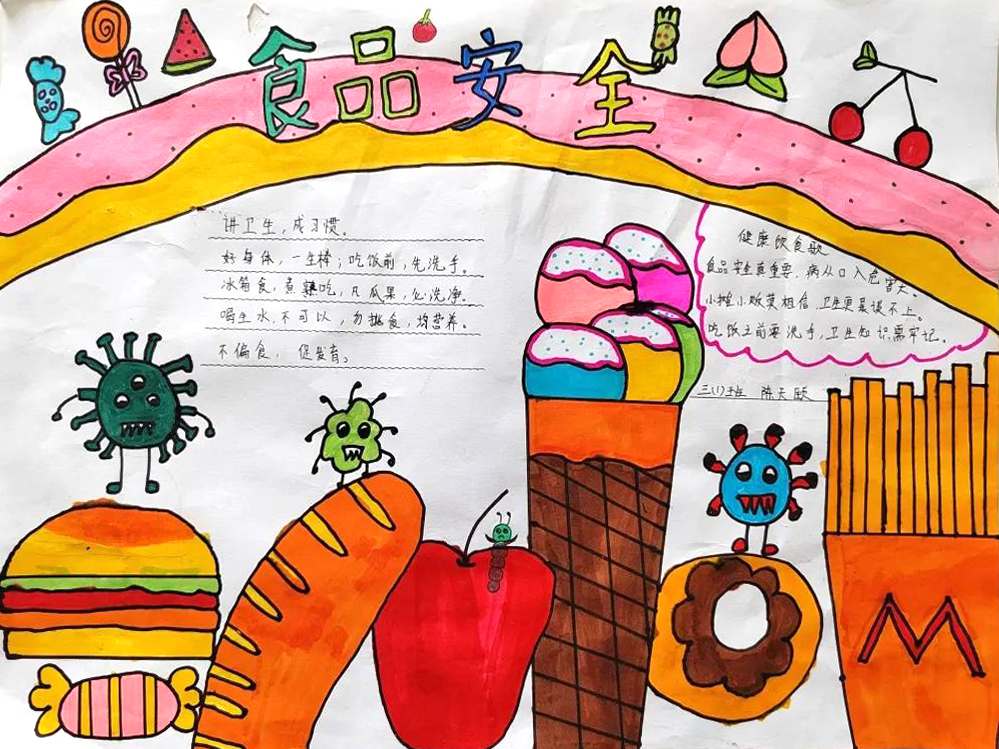 食品安全
讲卫生，成习惯。
好身体，一生棒；吃饭前，先洗手。
冰箱食，煮熟吃，凡瓜果，必洗净。
喝生水，不可以，勿挑食，均营养。
不偏食，促发育。
健康饮食歌
食品安全真重要，病从口入危害大。
小摊小贩莫相信，卫生更是谈不上。
吃饭之前要洗手，卫生知识需牢记。
三(1)班 陈天
M